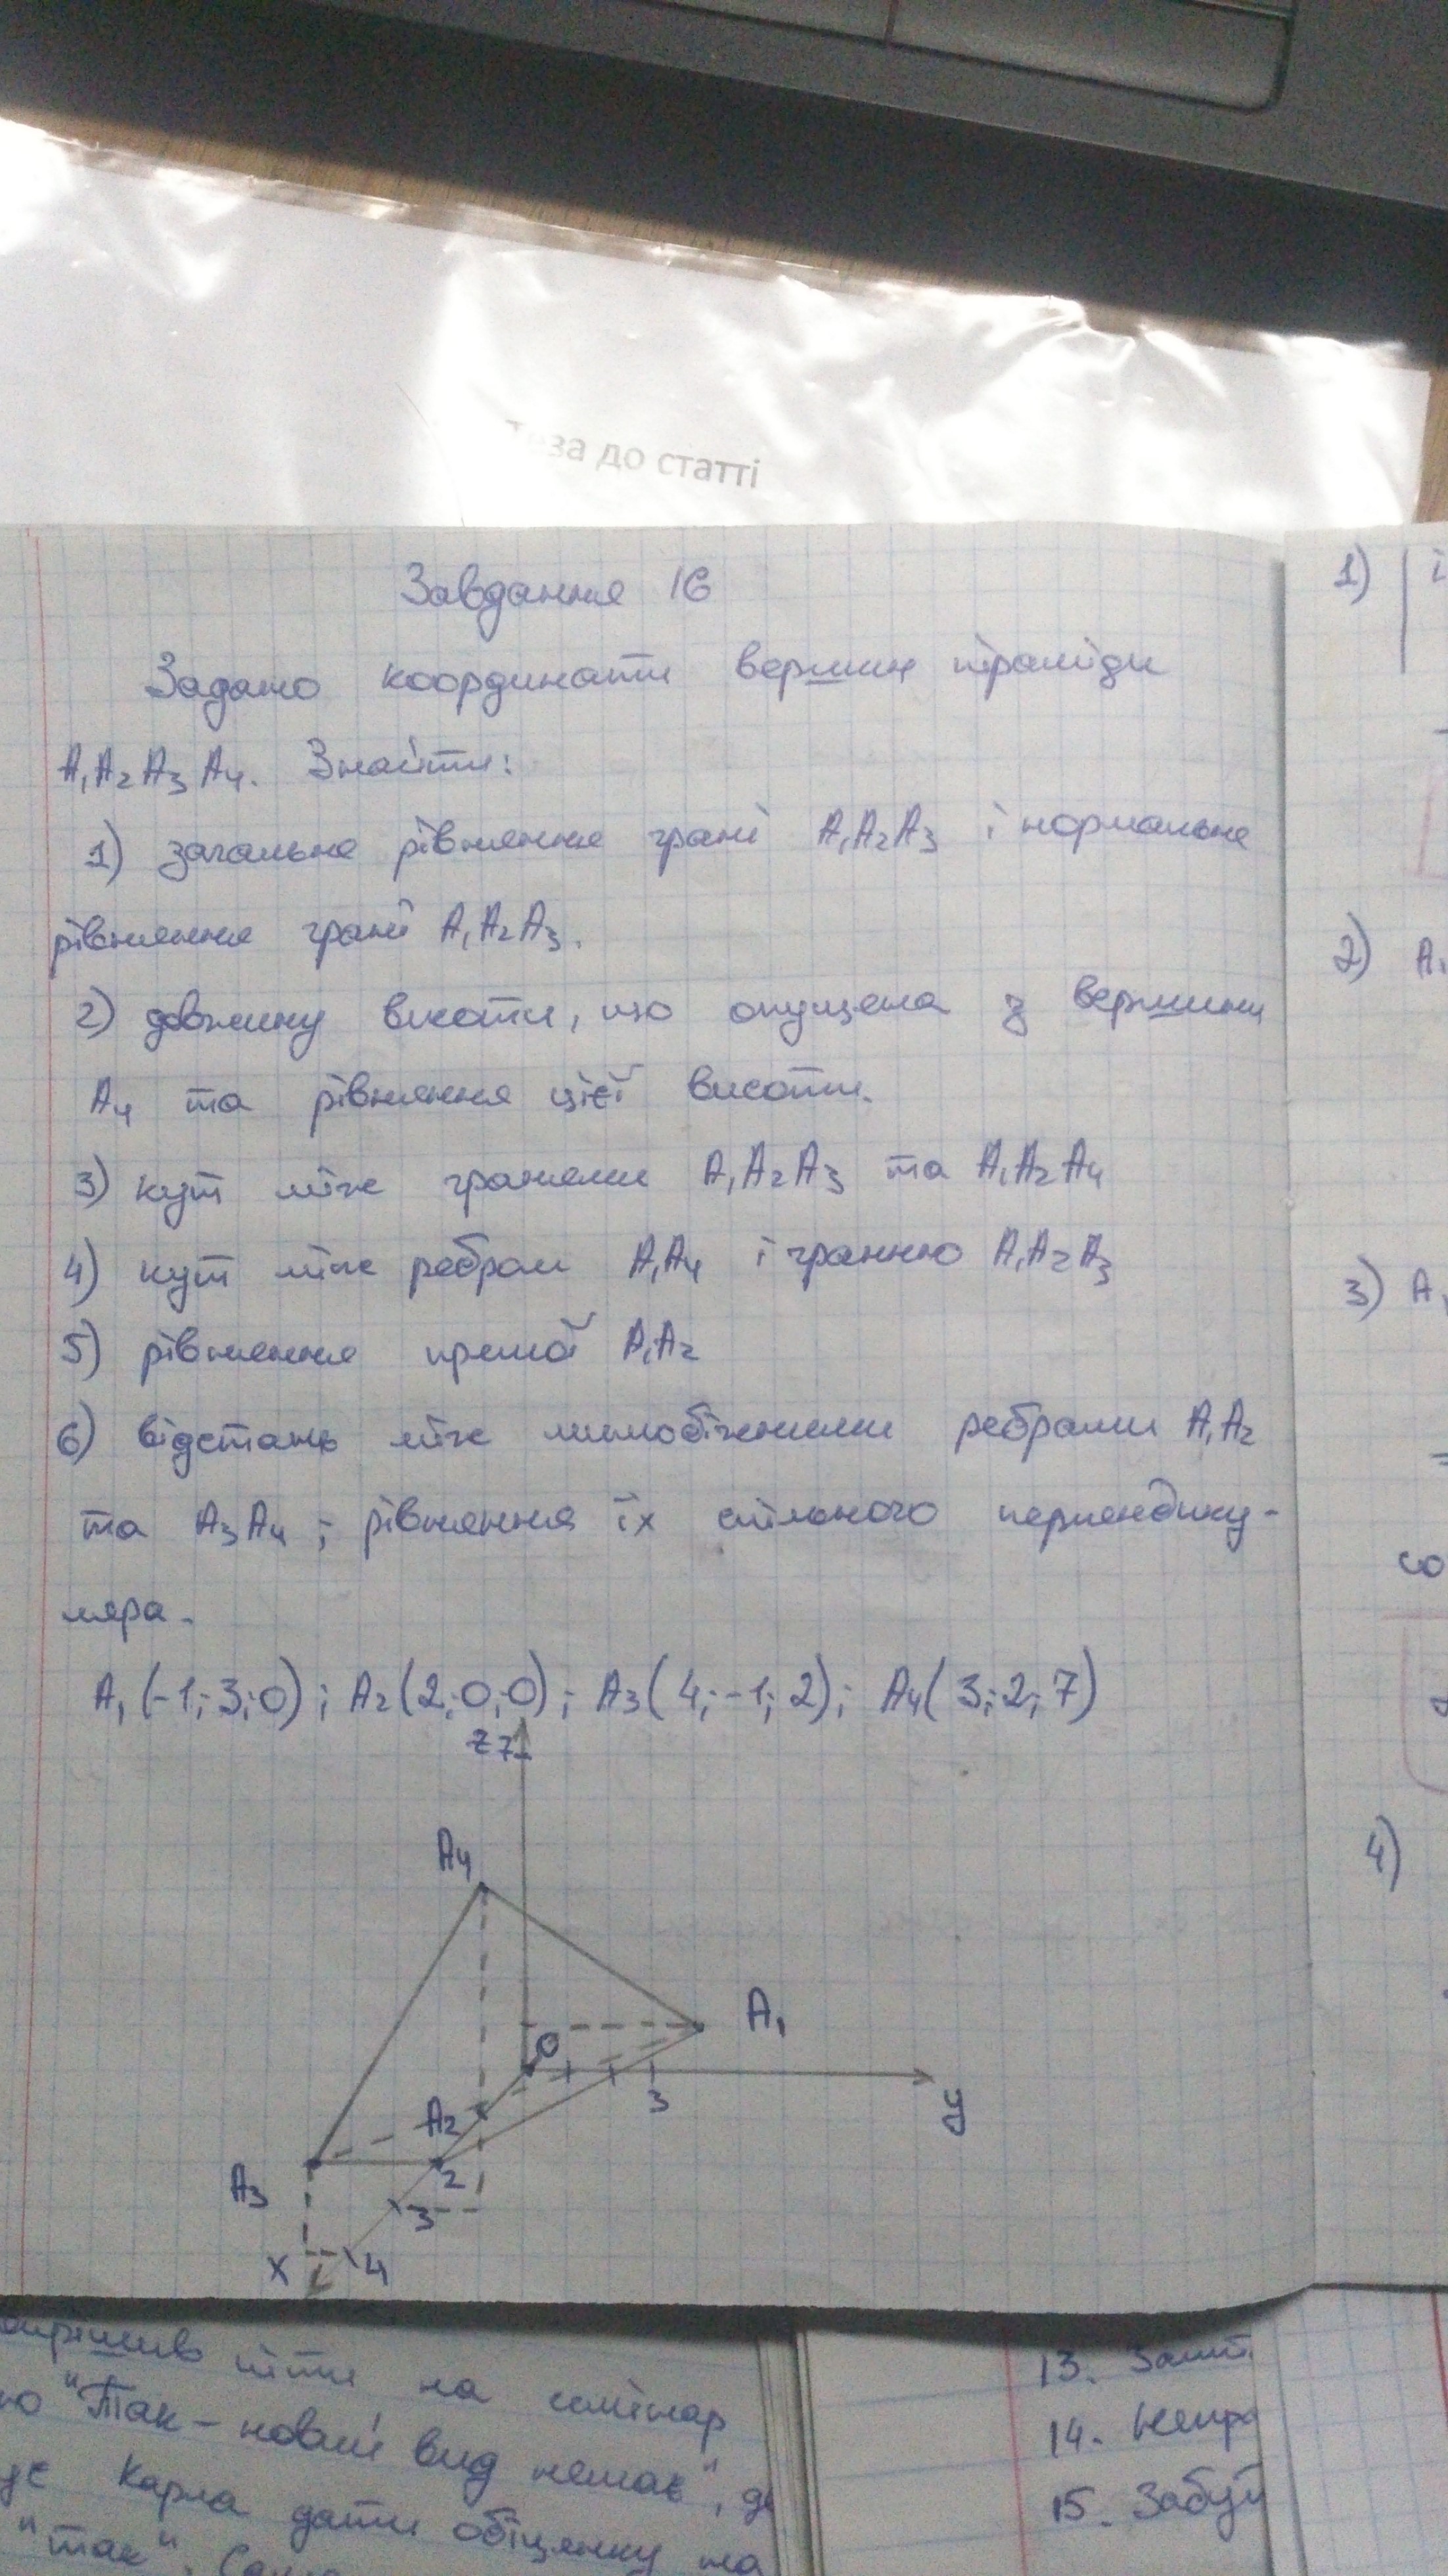 за до статті
Завдання 16
Задано координати вершин піраміди
A₁A₂A₃A₄. Знайти:
1) загальне рівняння грані A₁A₂A₃ і нормальне
рівняння грані A₁A₂A₃.
2) довжину висоти, що опущена з вершини
A₄ та рівняння цієї висоти.
3) кут між гранями A₁A₂A₃ та A₁A₂A₄
4) кут між ребром A₁A₄ і гранню A₁A₂A₃
5) рівняння прямої A₁A₂
6) відстань між мимобіжними ребрами A₁A₂
та A₃A₄; рівняння їх спільного перпендику-
ляра.
A₁(-1;3;0); A₂(2;0;0); A₃(4;-1;2); A₄(3;2;7)
z 7
A₄
A₁
0
A₂
3
y
A₃
2
3
x 4
1)
2) A₁
3) A₁
4)
вирішив піти на семінар
"Так – новий вид немає", де
Карла дати обіцянку на
"так".
13. Запит
14. Непра
15. Забут